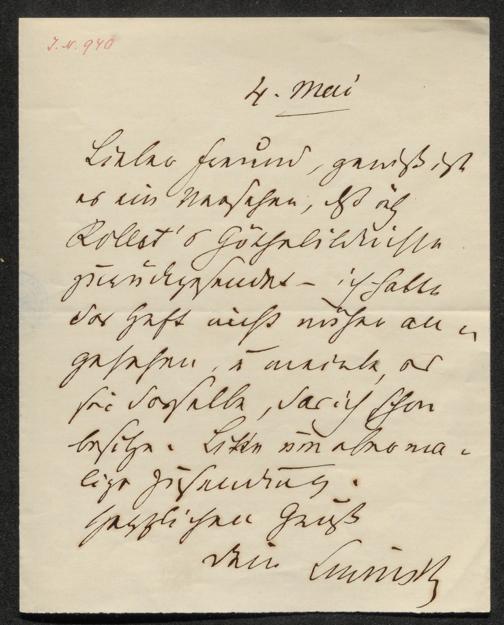 J. N. 940
4. Mai
Lieber Freund, gewiß ist
es ein Versehen, daß ich
Rollet's Göthebildnisse
zurückgesendet – ich hatte
das Heft nicht näher an-
gesehen, u meinte, es
sei dasselbe, das ich schon
besitze. Bitte um aberma-
lige Zusendung.
Herzlichen Gruß
Dein